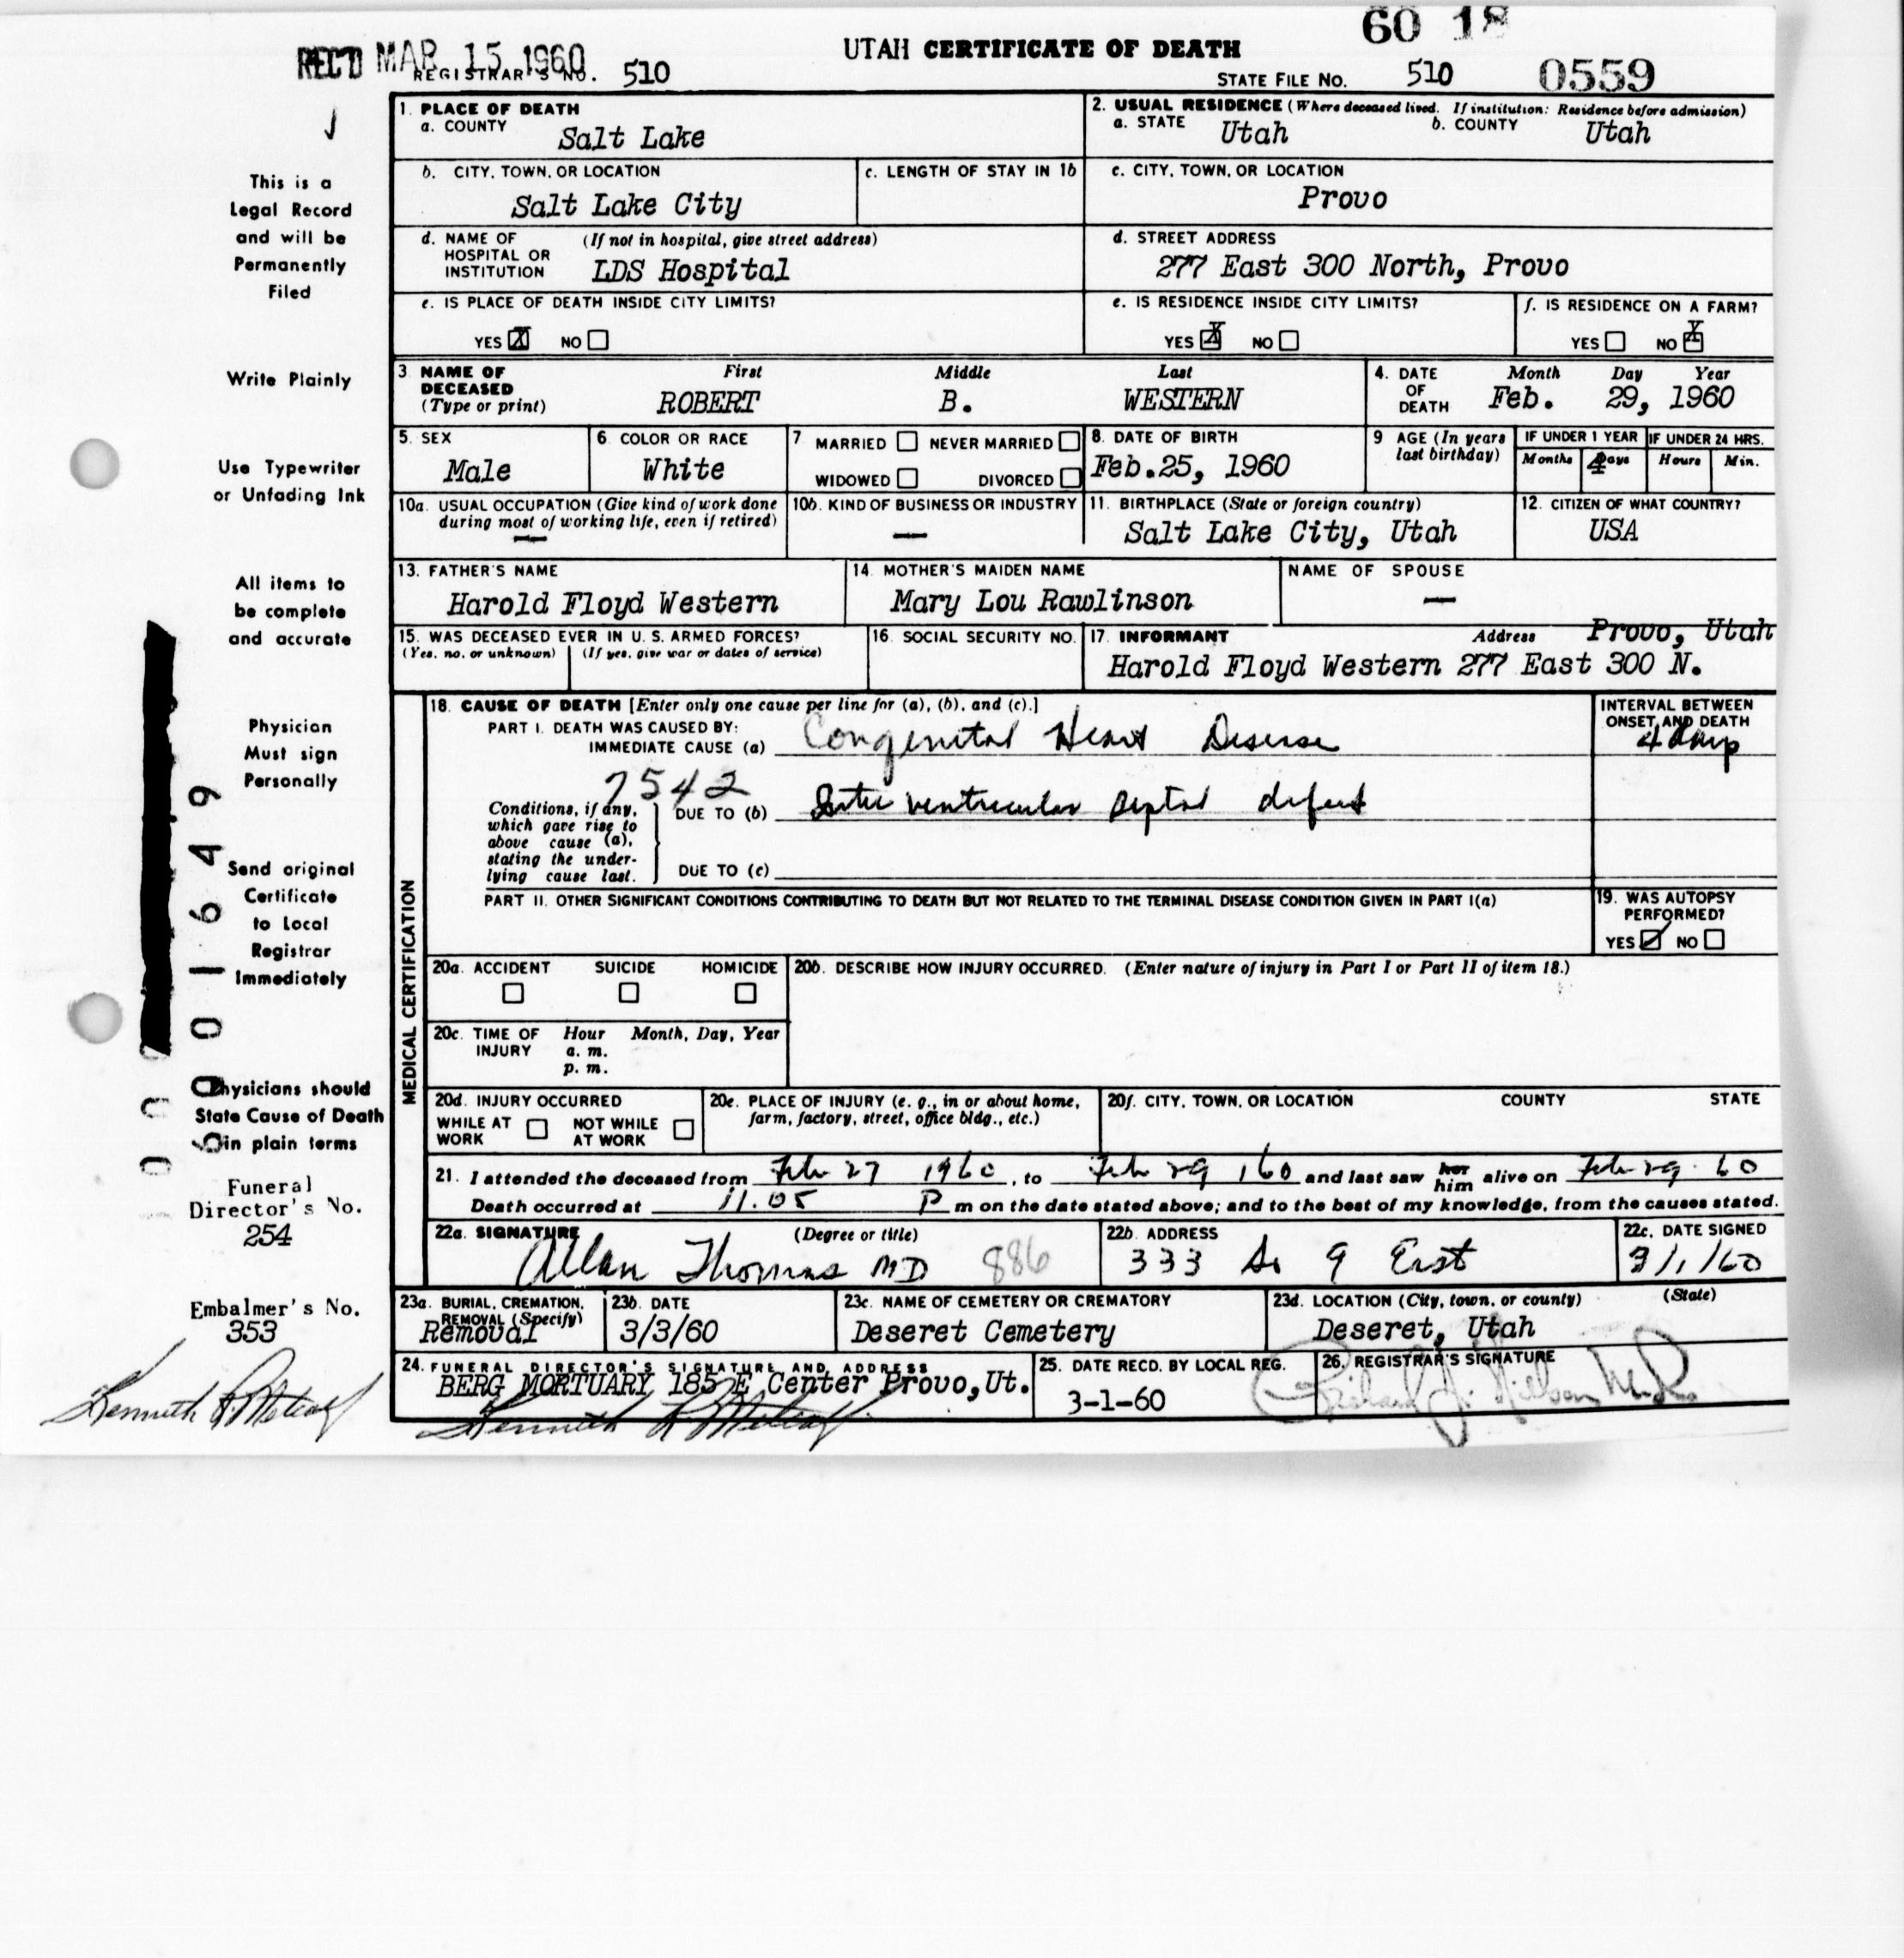 60 18
REC'D MAR 15 1960
UTAH CERTIFICATE OF DEATH
REGISTRAR'S NO. 510
STATE FILE NO. 510 0559
1. PLACE OF DEATH
a. COUNTY Salt Lake
2. USUAL RESIDENCE (Where deceased lived. If institution: Residence before admission)
a. STATE Utah b. COUNTY Utah
b. CITY, TOWN, OR LOCATION Salt Lake City
c. LENGTH OF STAY IN 1b
c. CITY, TOWN, OR LOCATION
Provo
d. NAME OF HOSPITAL OR INSTITUTION (If not in hospital, give street address)
LDS Hospital
d. STREET ADDRESS
277 East 300 North, Provo
e. IS PLACE OF DEATH INSIDE CITY LIMITS?
YES X NO
e. IS RESIDENCE INSIDE CITY LIMITS?
YES X NO
f. IS RESIDENCE ON A FARM?
YES NO X
3 NAME OF DECEASED (Type or print)
First Middle Last
ROBERT B. WESTERN
4. DATE OF DEATH
Month Day Year
Feb. 29, 1960
5. SEX
Male
6. COLOR OR RACE
White
7 MARRIED NEVER MARRIED
WIDOWED DIVORCED
8. DATE OF BIRTH
Feb.25, 1960
9 AGE (In years last birthday)
IF UNDER 1 YEAR IF UNDER 24 HRS.
Months Days Hours Min.
4
10a. USUAL OCCUPATION (Give kind of work done during most of working life, even if retired)
—
10b. KIND OF BUSINESS OR INDUSTRY
—
11. BIRTHPLACE (State or foreign country)
Salt Lake City, Utah
12. CITIZEN OF WHAT COUNTRY?
USA
13. FATHER'S NAME
Harold Floyd Western
14. MOTHER'S MAIDEN NAME
Mary Lou Rawlinson
NAME OF SPOUSE
—
15. WAS DECEASED EVER IN U. S. ARMED FORCES?
(Yes, no, or unknown) (If yes, give war or dates of service)
16. SOCIAL SECURITY NO.
17. INFORMANT Address Provo, Utah
Harold Floyd Western 277 East 300 N.
MEDICAL CERTIFICATION
18. CAUSE OF DEATH [Enter only one cause per line for (a), (b), and (c).]
PART I. DEATH WAS CAUSED BY:
IMMEDIATE CAUSE (a) Congenital Heart Disease
INTERVAL BETWEEN ONSET AND DEATH
4 days
7542
Conditions, if any, which gave rise to above cause (a), stating the underlying cause last.
DUE TO (b) Inter ventricular septal defect
DUE TO (c)
PART II. OTHER SIGNIFICANT CONDITIONS CONTRIBUTING TO DEATH BUT NOT RELATED TO THE TERMINAL DISEASE CONDITION GIVEN IN PART I(a)
19. WAS AUTOPSY PERFORMED?
YES NO
20a. ACCIDENT SUICIDE HOMICIDE
20b. DESCRIBE HOW INJURY OCCURRED. (Enter nature of injury in Part I or Part II of item 18.)
20c. TIME OF INJURY Hour Month, Day, Year
a. m.
p. m.
20d. INJURY OCCURRED
WHILE AT WORK NOT WHILE AT WORK
20e. PLACE OF INJURY (e. g., in or about home, farm, factory, street, office bldg., etc.)
20f. CITY, TOWN, OR LOCATION COUNTY STATE
21. I attended the deceased from Feb 27 1960, to Feb 29 160 and last saw her him alive on Feb 29 60
Death occurred at 11.05 P m on the date stated above; and to the best of my knowledge, from the causes stated.
22a. SIGNATURE (Degree or title)
Allan Thomas MD 886
22b. ADDRESS
333 So 9 East
22c. DATE SIGNED
3/1/60
23a. BURIAL, CREMATION, REMOVAL (Specify)
Removal
23b. DATE
3/3/60
23c. NAME OF CEMETERY OR CREMATORY
Deseret Cemetery
23d. LOCATION (City, town, or county) (State)
Deseret, Utah
24. FUNERAL DIRECTOR'S SIGNATURE AND ADDRESS
BERG MORTUARY 185 E Center Provo, Ut.
Kenneth R Metcalf
25. DATE RECD. BY LOCAL REG.
3-1-60
26. REGISTRAR'S SIGNATURE
This is a
Legal Record
and will be
Permanently
Filed
Write Plainly
Use Typewriter
or Unfading Ink
All items to
be complete
and accurate
Physician
Must sign
Personally
Send original
Certificate
to Local
Registrar
Immediately
Physicians should
State Cause of Death
in plain terms
Funeral
Director's No.
254
Embalmer's No.
353
Kenneth R Metcalf